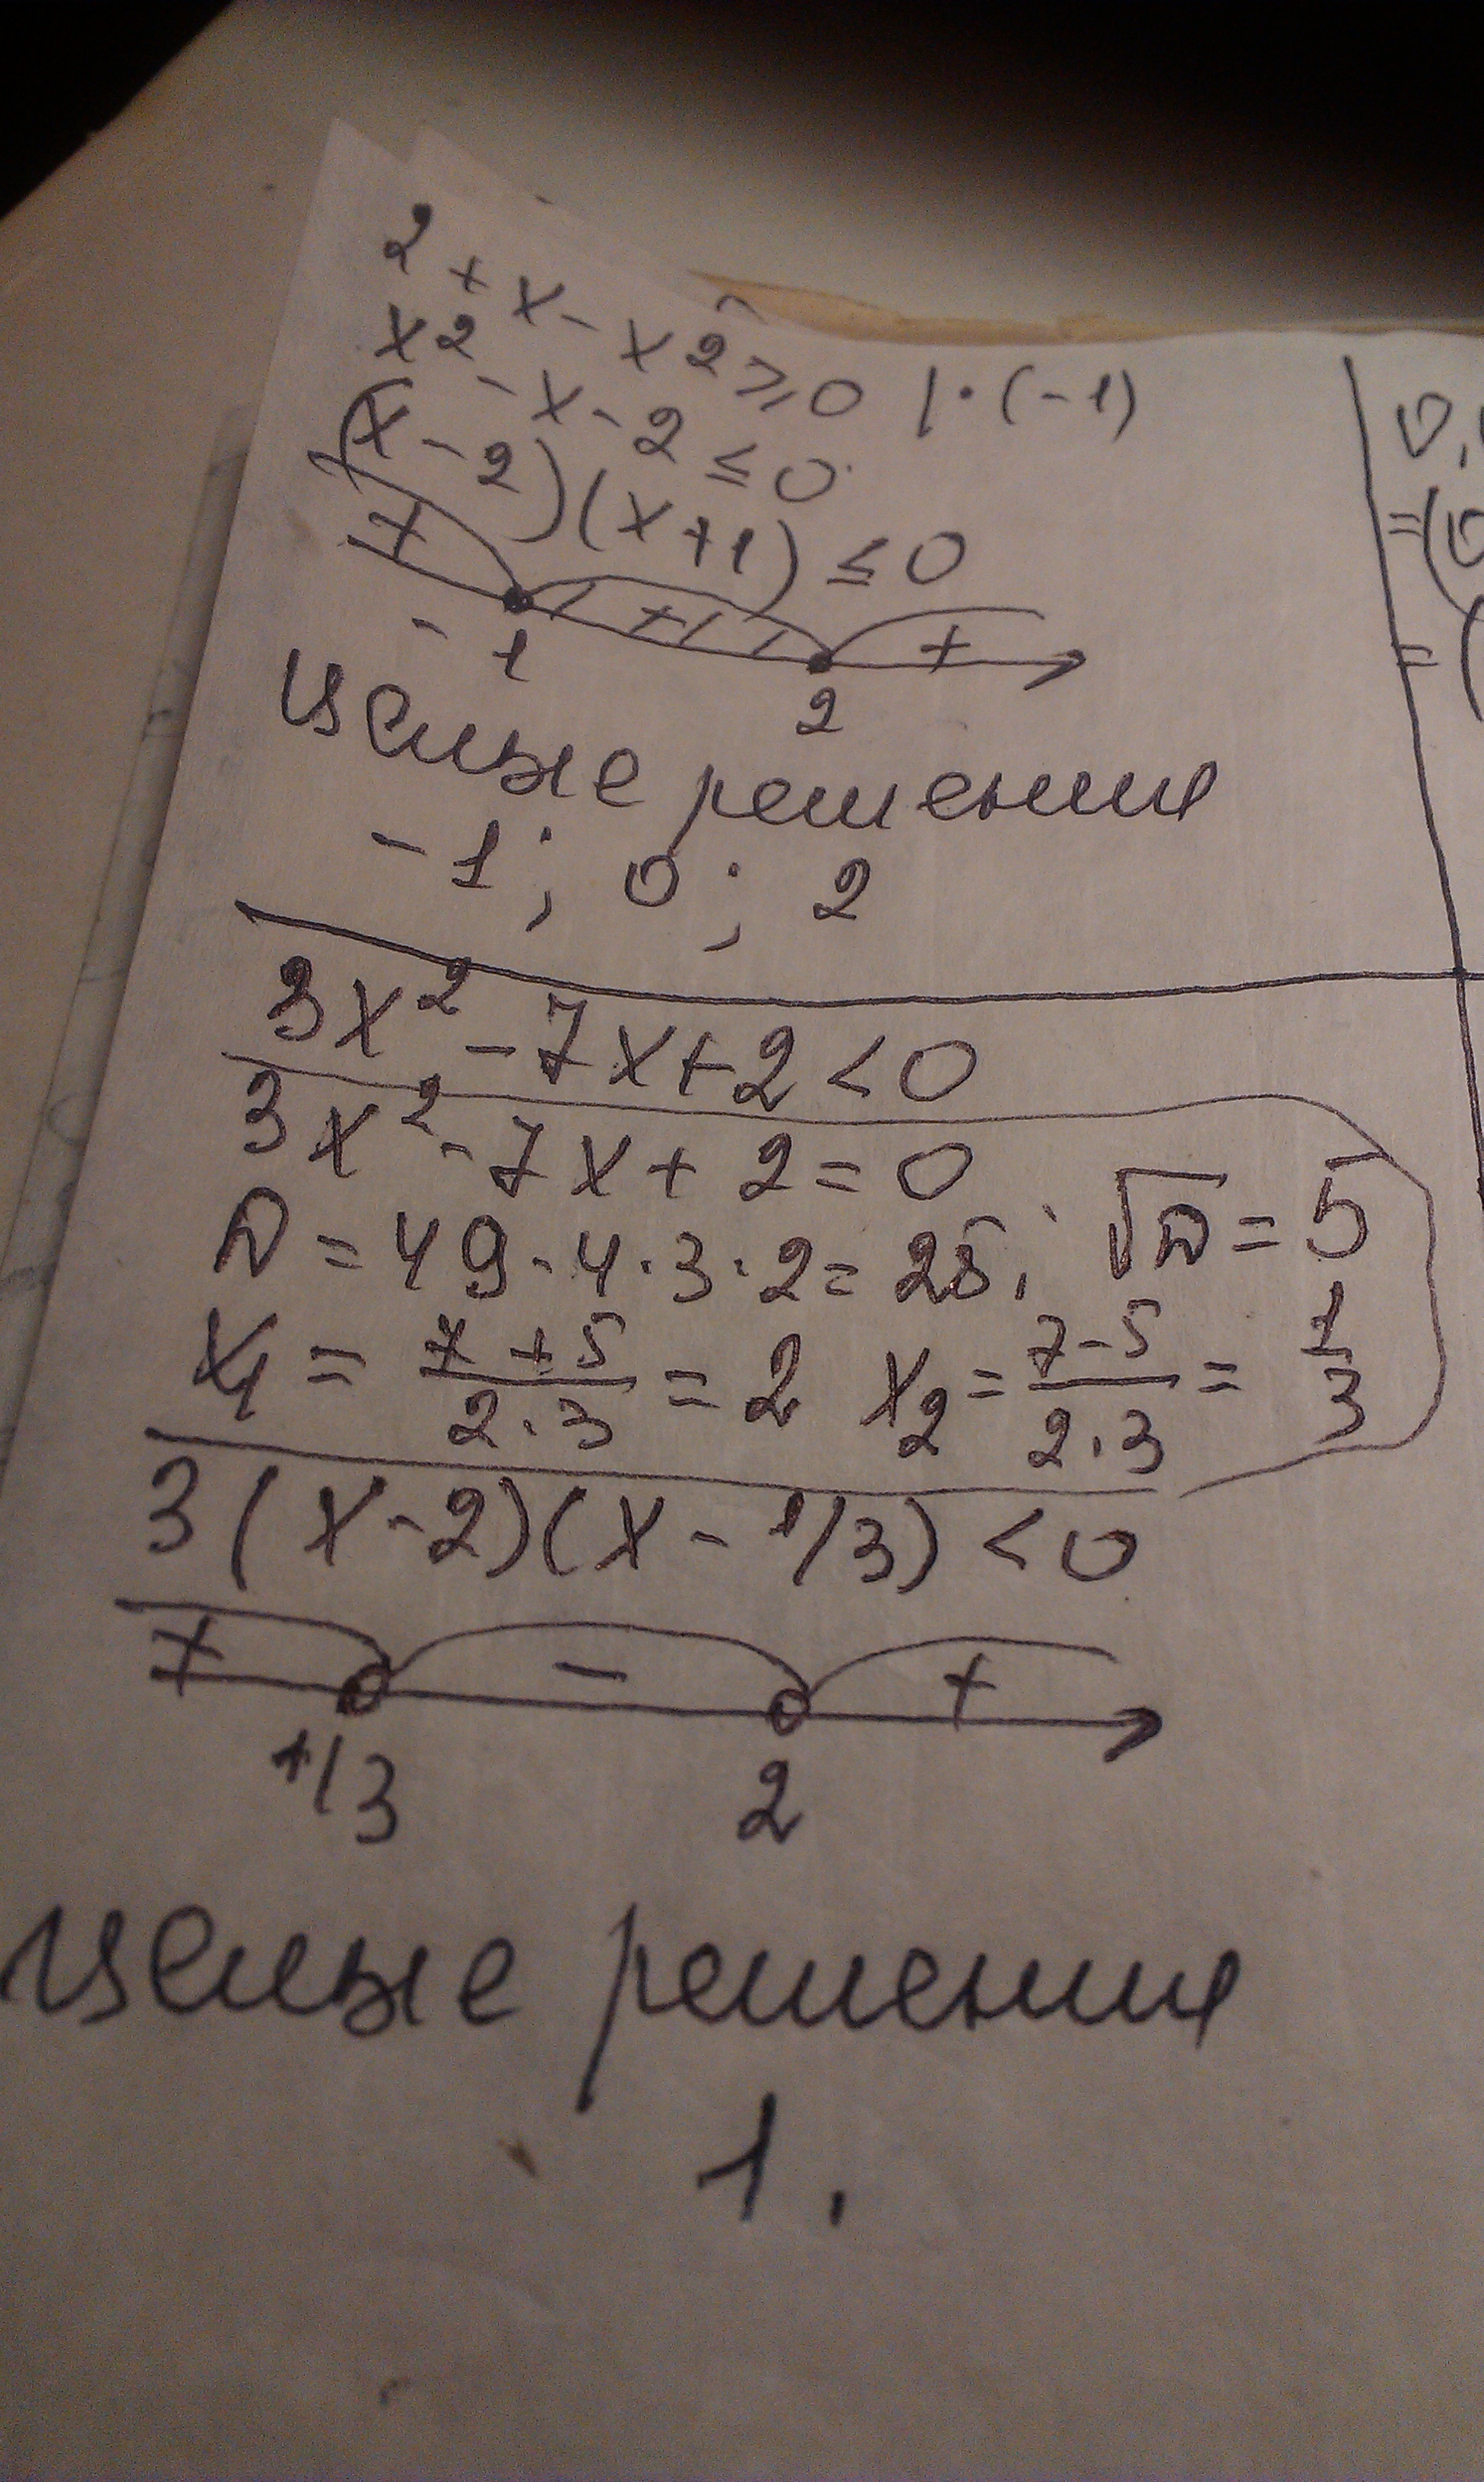 2 + x - x2 ≥ 0 | · (-1)
x2 - x - 2 ≤ 0
(x - 2)(x + 1) ≤ 0
+ + +
-1 2
целые решения
-1; 0; 2
3x² - 7x + 2 < 0
3x² - 7x + 2 = 0
D = 49 - 4 · 3 · 2 = 25; √D = 5
x₁ = (7 + 5)/(2 · 3) = 2 x₂ = (7 - 5)/(2 · 3) = 1/3
3(x - 2)(x - 1/3) < 0
+ - +
1/3 2
целые решения
1.
0,
=(0
=(